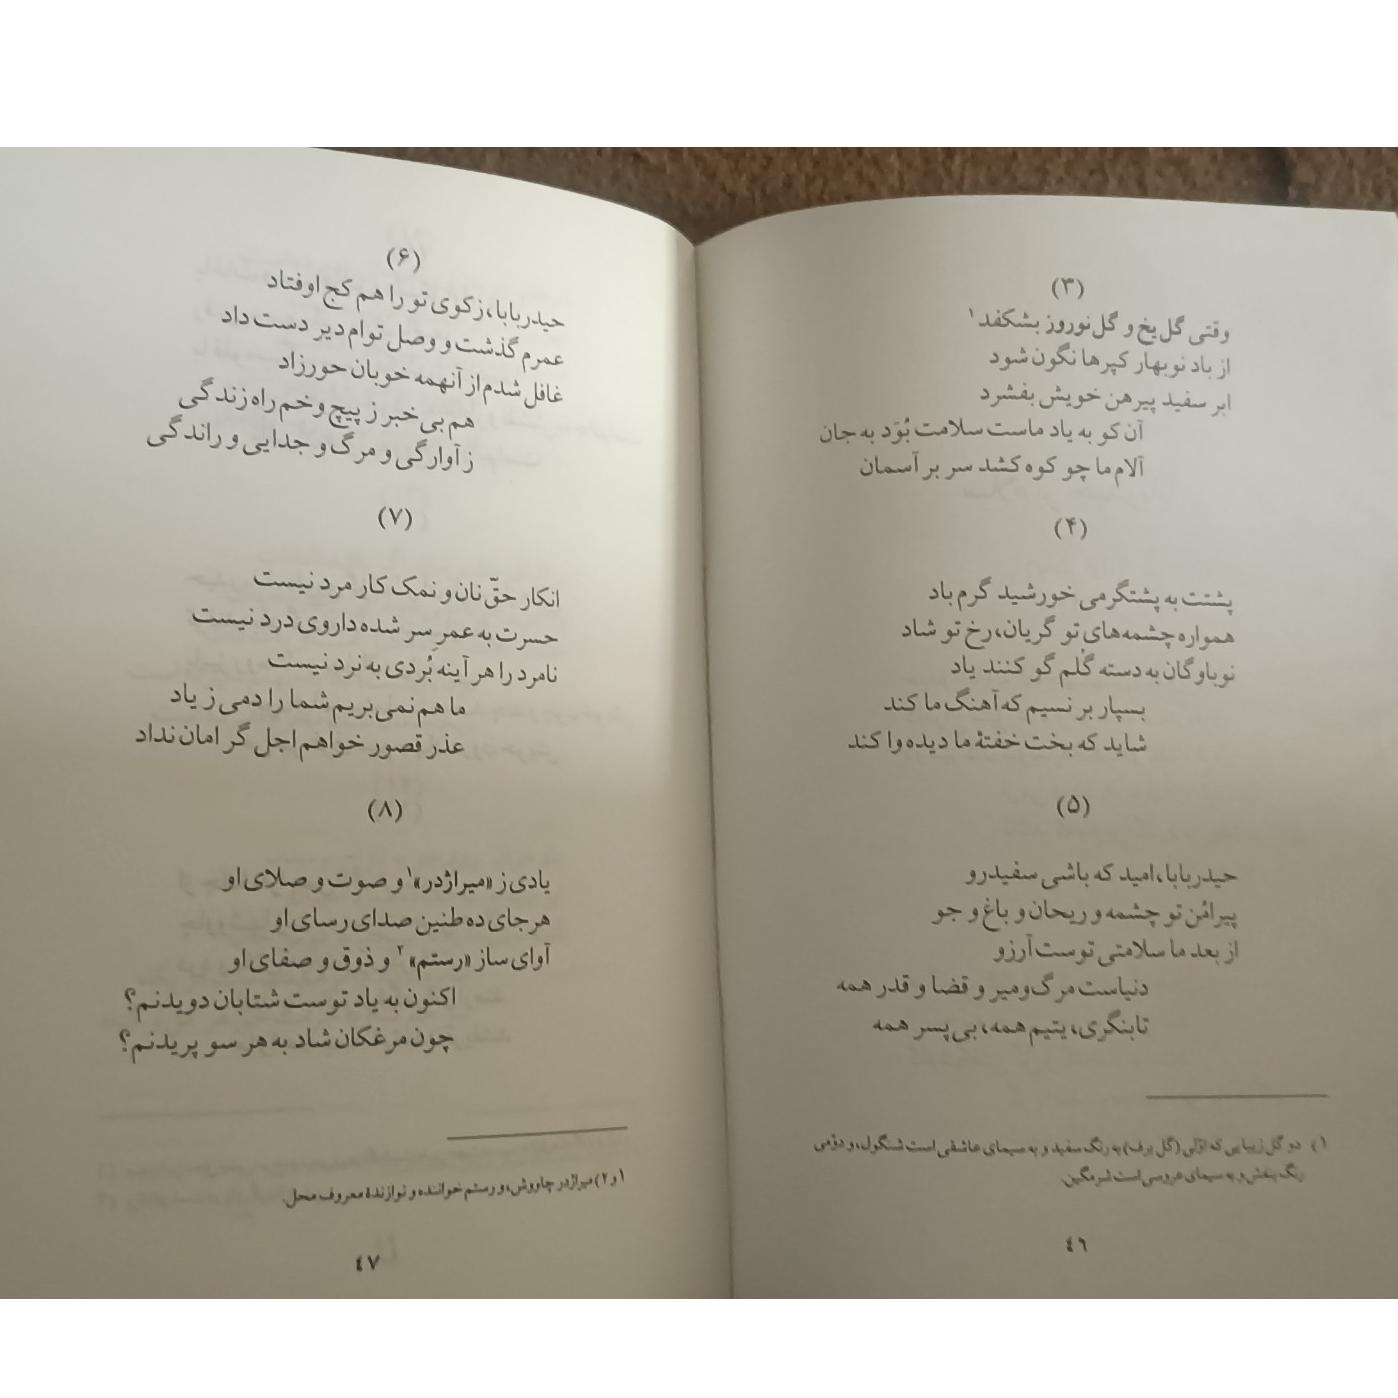 (۳)
وقتی گل یخ و گل نوروز بشکفد ۱
از باد نوبهار کپرها نگون شود
ابر سفید پیرهن خویش بفشرد
آن کو به یاد ماست سلامت بُوَد به جان
آلام ما چو کوه کشد سر بر آسمان
(۴)
پشتت به پشتگرمی خورشید گرم باد
همواره چشمه‌های تو گریان، رخ تو شاد
نوباوگان به دسته گُلم گو کنند یاد
بسپار بر نسیم که آهنگ ما کند
شاید که بخت خفتهٔ ما دیده وا کند
(۵)
حیدربابا، امید که باشی سفیدرو
پیرامُن تو چشمه و ریحان و باغ و جو
از بعد ما سلامتی توست آرزو
دنیاست مرگ‌ومیر و قضا و قدر همه
تا بنگری، یتیم همه، بی‌پسر همه
۱) دو گل زیبایی که اوّلی (گل برف) به رنگ سفید و به سیمای عاشقی است شنگول، و دوّمی
رنگ بنفش و به سیمای عروسی است شرمگین.
٤٦
(۶)
حیدربابا، ز کوی تو را هم کج اوفتاد
عمرم گذشت و وصل توام دیر دست داد
غافل شدم از آنهمه خوبان حورزاد
هم بی‌خبر ز پیچ و خم راه زندگی
ز آوارگی و مرگ و جدایی و راندگی
(۷)
انکار حقّ نان و نمک کار مرد نیست
حسرت به عمرِ سر شده داروی درد نیست
نامرد را هر آینه بُردی به نرد نیست
ما هم نمی‌بریم شما را دمی ز یاد
عذر قصور خواهم اجل گر امان نداد
(۸)
یادی ز «میراژدر»۱ و صوت و صلای او
هرجای ده طنین صدای رسای او
آوای ساز «رستم» ۲ و ذوق و صفای او
اکنون به یاد توست شتابان دویدنم؟
چون مرغکان شاد به هر سو پریدنم؟
۱ و ۲) میراژدر چاووش، و رستم خواننده و نوازندهٔ معروف محل.
٤٧